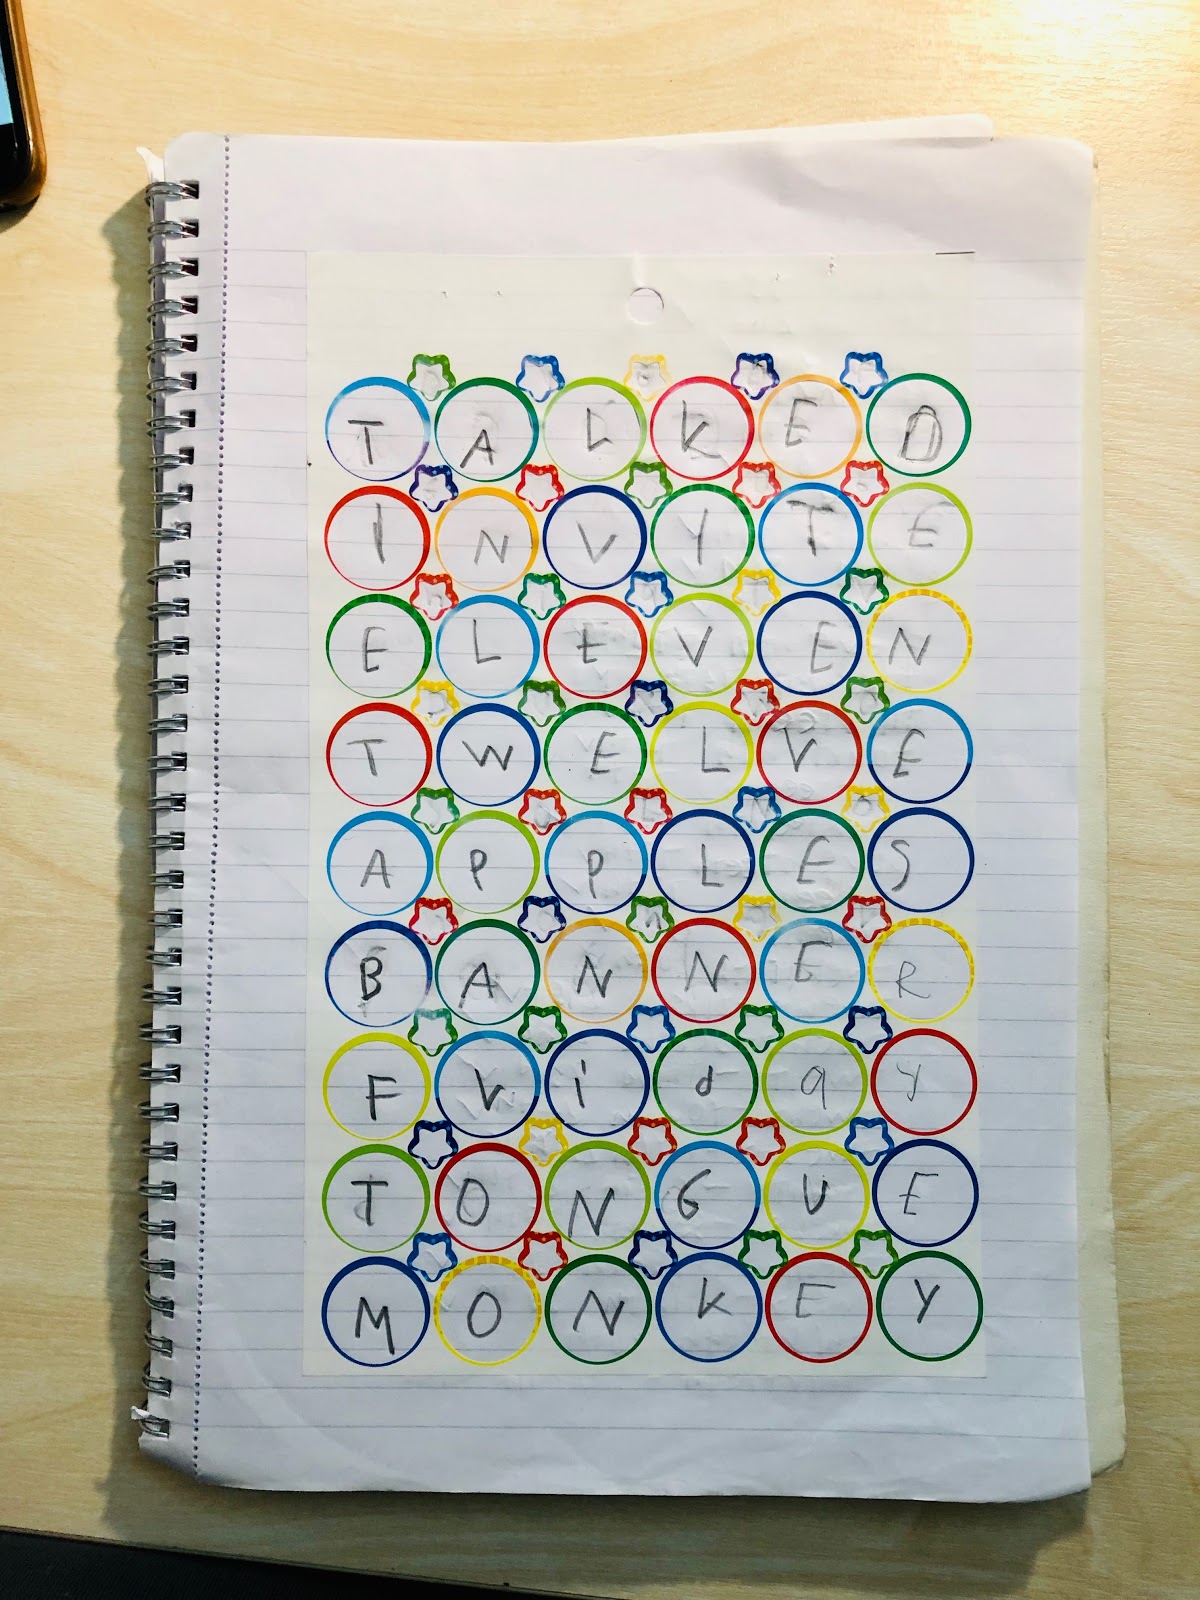 TALKED
INVYTE
ELEVEN
TWELVE
APPLES
BANNER
Friday
TONGUE
MONKEY